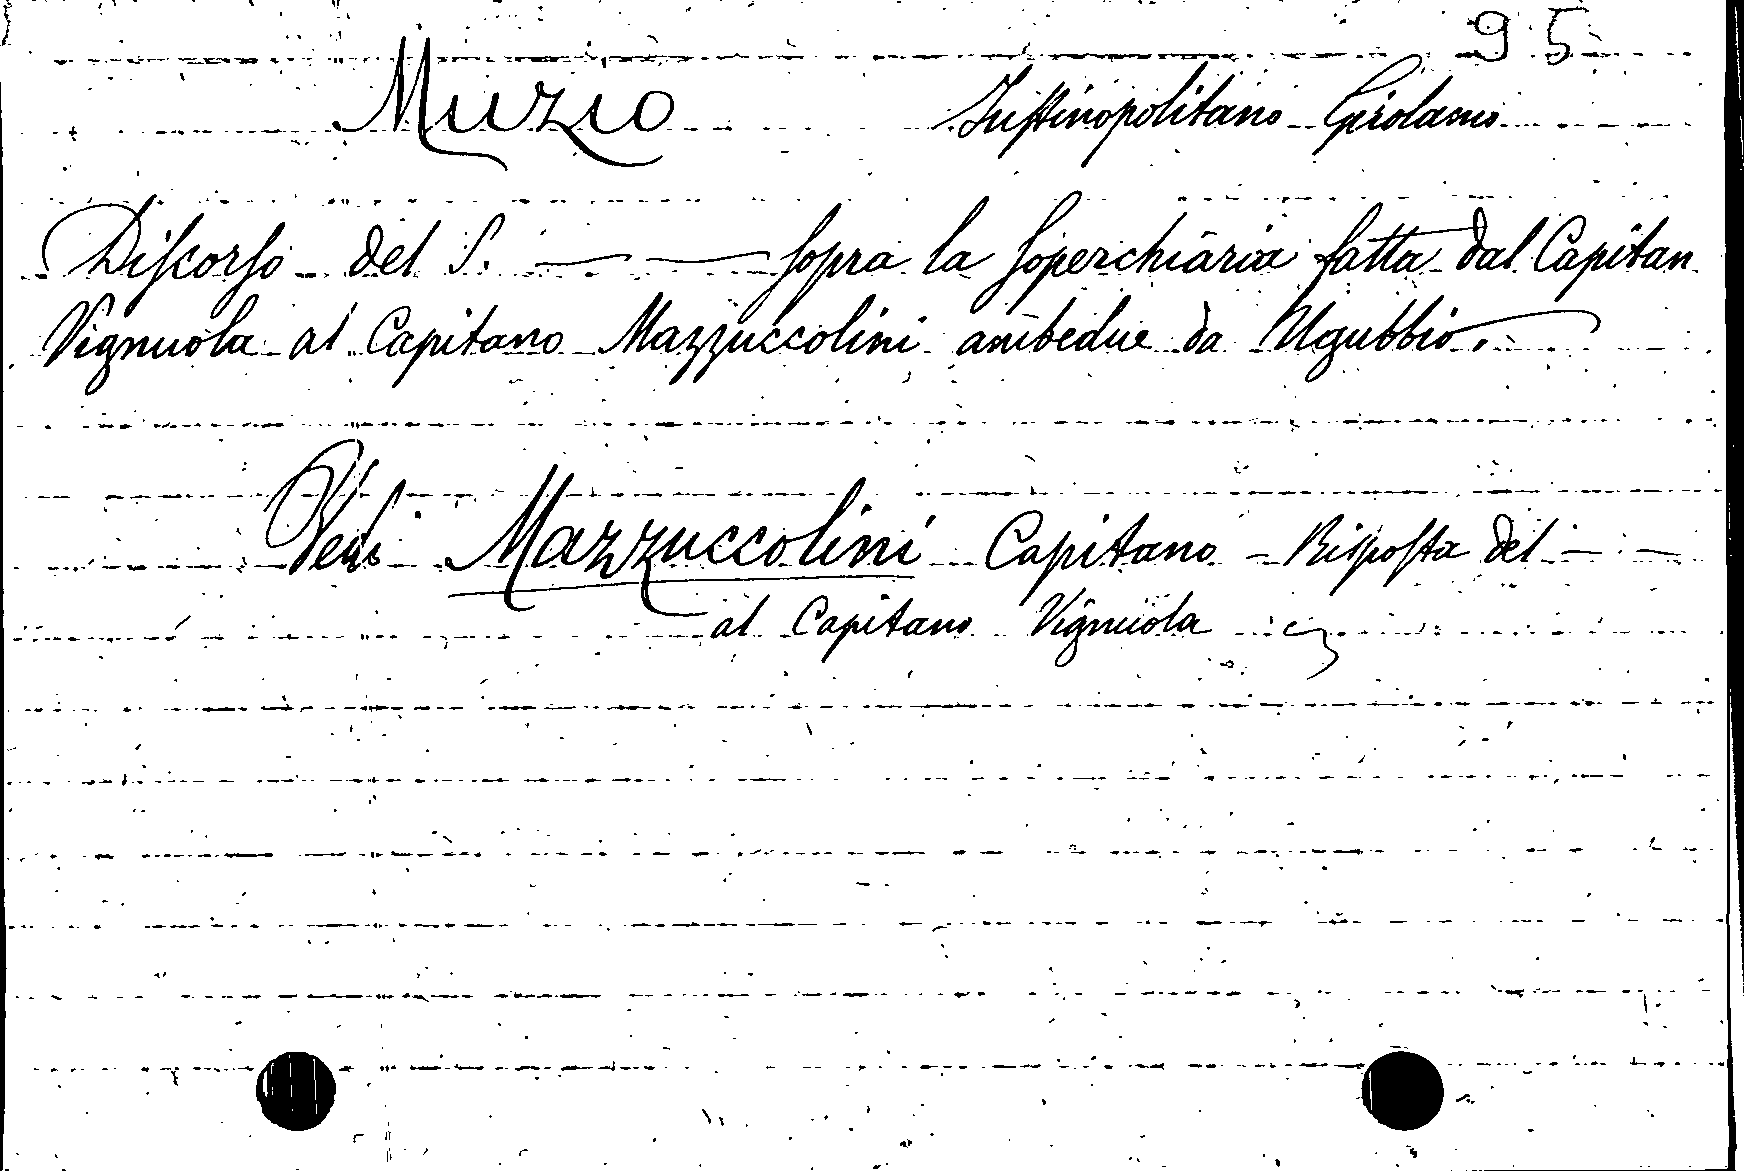 95
Muzio Iustinopolitano Girolamo
Discorso del S. —— sopra la soperchiaria fatta dal Capitan
Vignuola al Capitano Mazzuccolini ambedue da Ugubbio.
Vedi Mazzuccolini Capitano - Risposta del —
al Capitano Vignuola